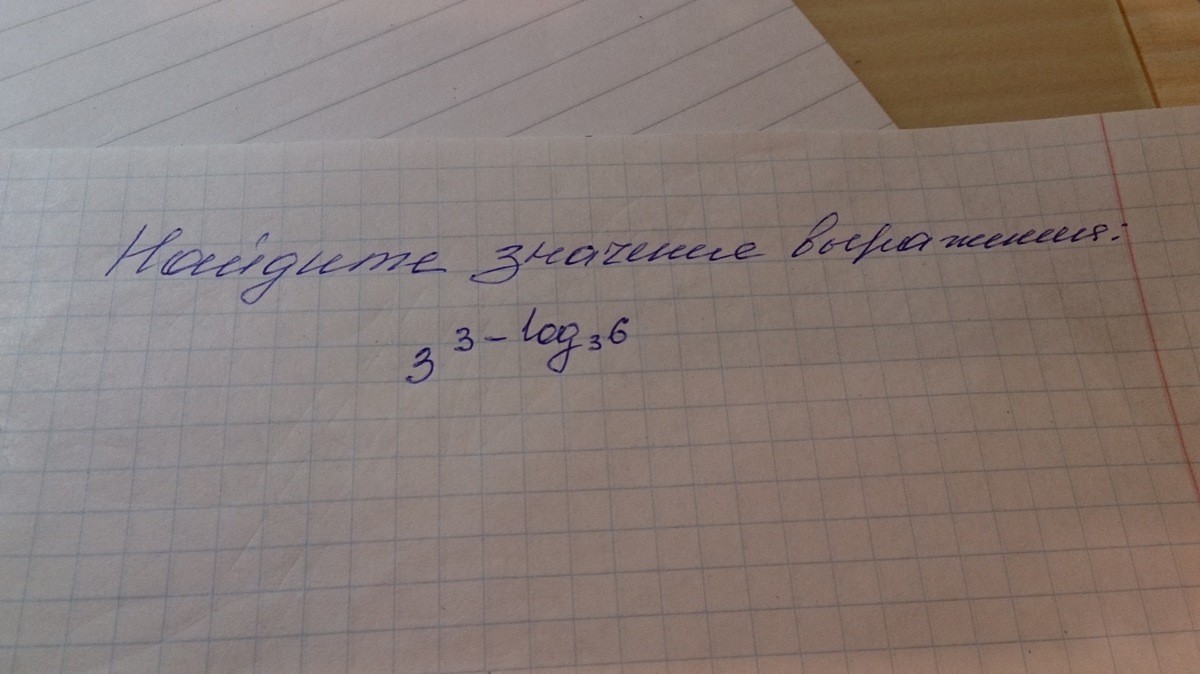 Найдите значение выражения:
3^{3-log_3 6}